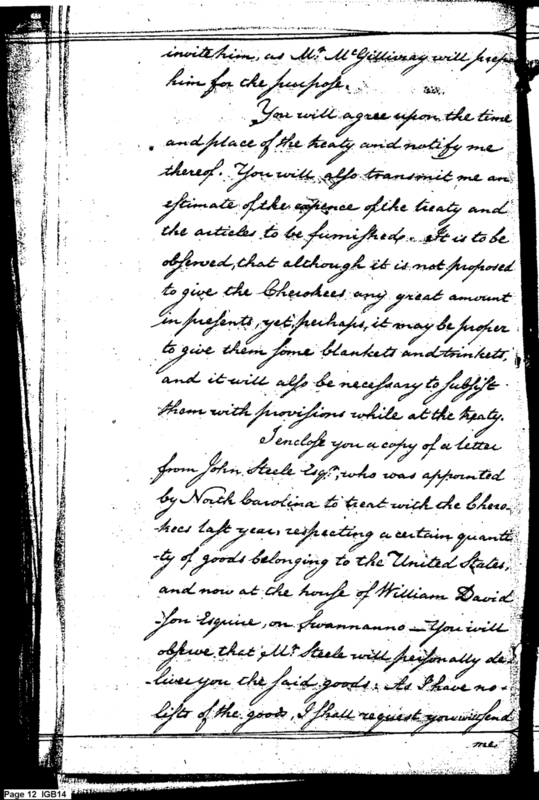 invite him, as Mr. McGillivray will prepa
him for the purpose.
You will agree upon the time
and place of the treaty and notify me
thereof. You will also transmit me an
estimate of the expence of the treaty and
the articles to be furnished. It is to be
observed, that although it is not proposed
to give the Cherokees any great amount
in presents, yet, perhaps, it may be proper
to give them some blankets and trinkets,
and it will also be necessary to subsist
them with provisions while at the treaty.
I enclose you a copy of a letter
from John Steele Esqr., who was appointed
by North Carolina to treat with the Chero-
-kees last year, respecting a certain quanti-
-ty of goods belonging to the United States,
and now at the house of William David
-son Esquire, on Swannanno — You will
observe that Mr. Steele will personally de-
-liver you the said goods. As I have no
lists of the goods, I shall request you will send
me
Page 12 IGB14